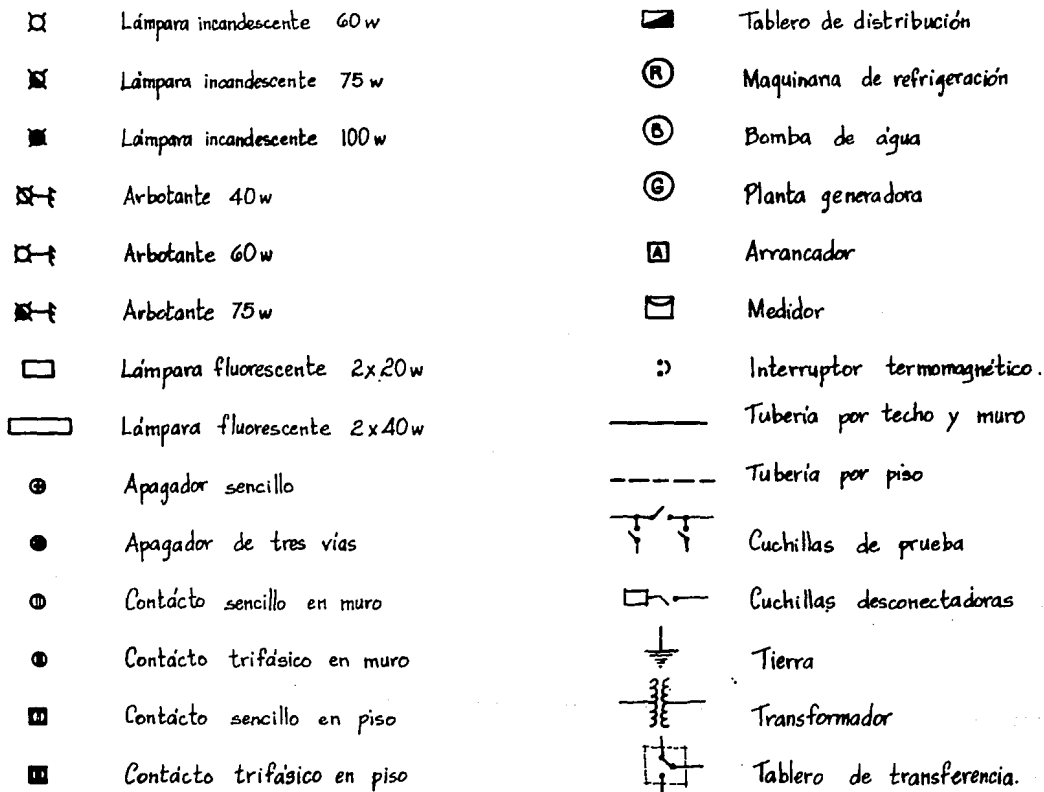 Lámpara incandescente 60 w
Lámpara incandescente 75 w
Lámpara incandescente 100 w
Arbotante 40 w
Arbotante 60 w
Arbotante 75 w
Lámpara fluorescente 2x20 w
Lámpara fluorescente 2x40 w
Apagador sencillo
Apagador de tres vías
Contácto sencillo en muro
Contácto trifásico en muro
Contácto sencillo en piso
Contácto trifásico en piso
Tablero de distribución
R Maquinaria de refrigeración
B Bomba de água
G Planta generadora
A Arrancador
Medidor
Interruptor termomagnético.
Tubería por techo y muro
Tubería por piso
Cuchillas de prueba
Cuchillas desconectadoras
Tierra
Transformador
Tablero de transferencia.